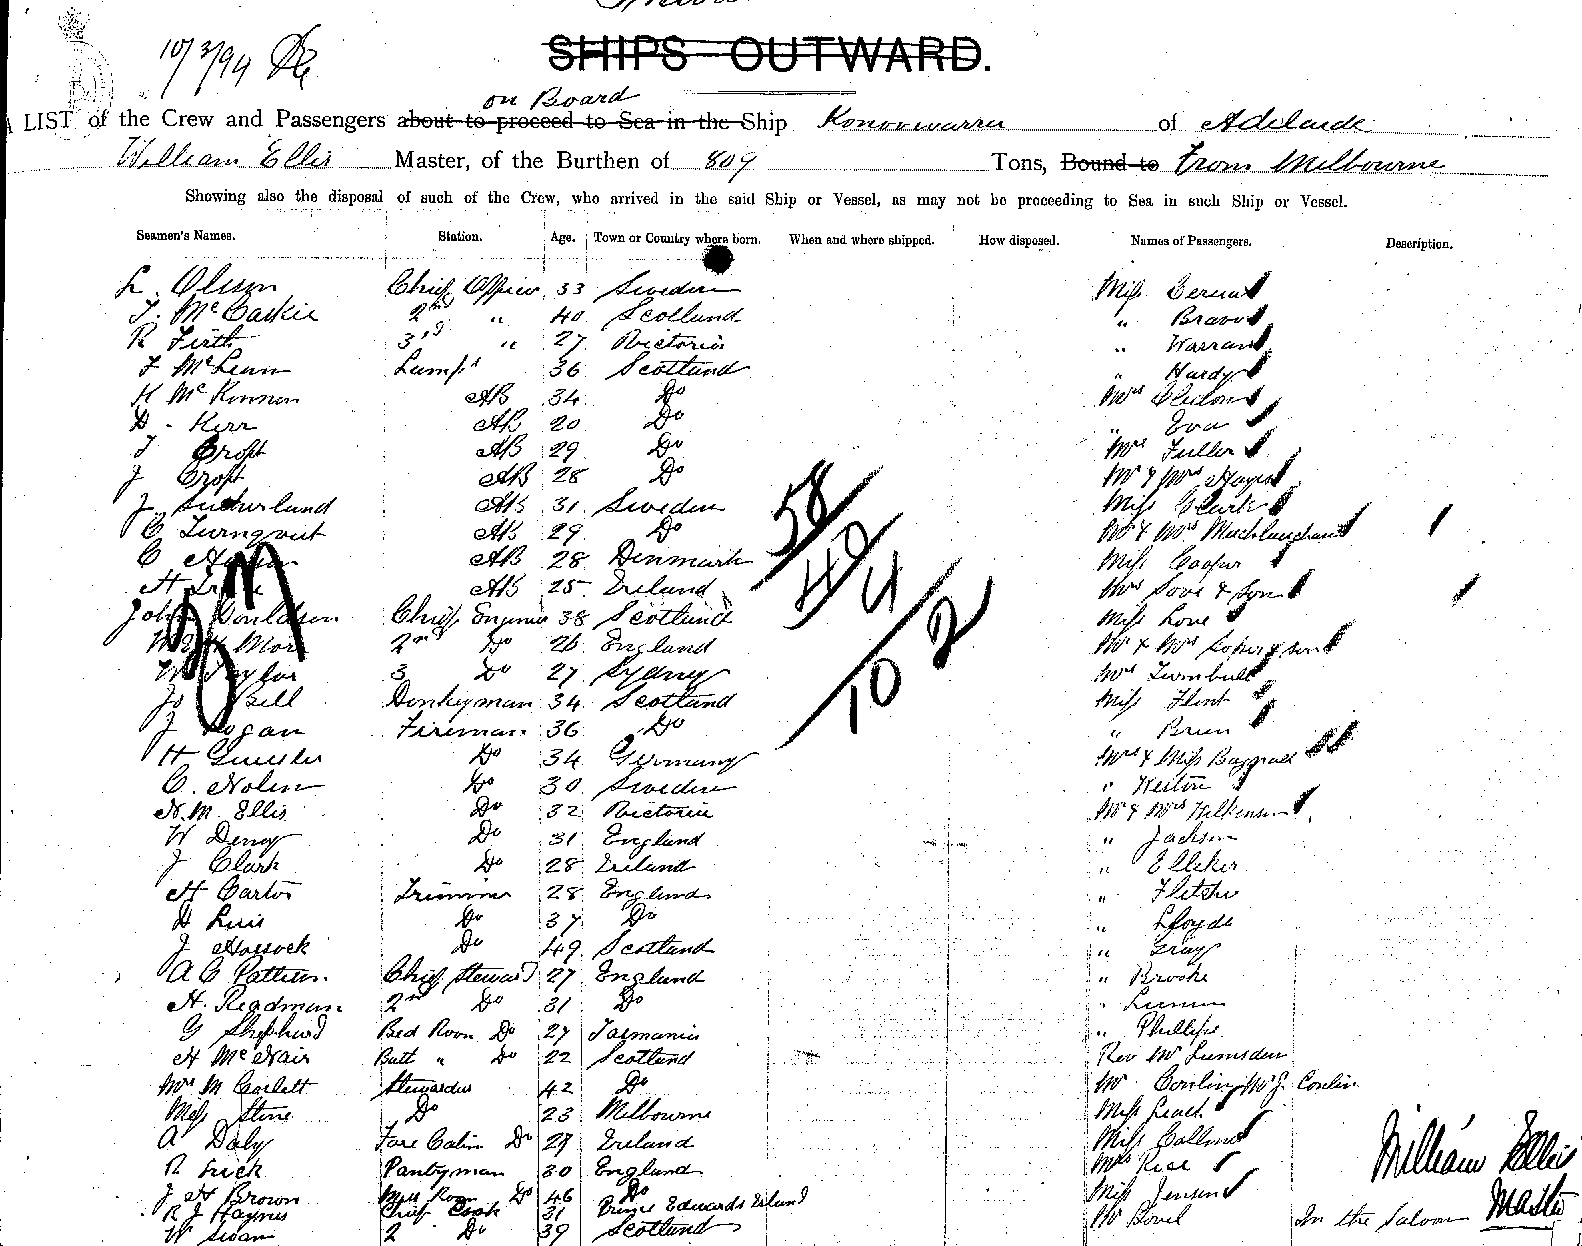 10/3/94
SHIPS OUTWARD.
on Board
LIST of the Crew and Passengers about to proceed to Sea in the Ship Konoowarra of Adelaide
William Ellis Master, of the Burthen of 809 Tons, Bound to from Melbourne
Showing also the disposal of such of the Crew, who arrived in the said Ship or Vessel, as may not be proceeding to Sea in such Ship or Vessel.
Seamen's Names. Station. Age. Town or Country where born. When and where shipped. How disposed. Names of Passengers. Description.
L. Olsson Chief Officer 33 Sweden Miss
J. McCaskie 2nd " 40 Scotland " Bravo
R Firth 3rd " 27 Victoria " Warran
J McLean Lamps 36 Scotland " Hardy
K McKinnon AB 34 Do Mrs
D. Kerr AB 20 Do " Eva
J Croft AB 29 Do Mrs Fuller
J Croft AB 28 Do Mr & Mrs Hayes
J Sutherland AB 31 Sweden Miss Clark
C Turnqvist AB 29 Do Mr & Mrs
C AB 28 Denmark Miss Cooper
H AB 25 Ireland Mrs Love & Son
John Donaldson Chief Engineer 38 Scotland Miss Love
Moir 2nd Do 26 England Mr & Mrs & son
W Taylor 3 Do 27 Sydney Mrs Turnbull
Jo Bell Donkeyman 34 Scotland Miss Flint
J Logan Fireman 36 Do " Brien
H Do 34 Germany Mrs & Miss
C. Nolin Do 30 Sweden " Weston
N. M. Ellis Do 32 Victoria Mr & Mrs Wilkinson
W Deny Do 31 England " Jackson
J Clark Do 28 Ireland " Elleker
H Carter Trimmer 28 England " Fletcher
D Luis Do 37 Do " Lloyde
J Hossock Do 49 Scotland " Gray
A C Patterson Chief Steward 27 England " Brooke
H. Readman 2nd Do 31 Do "
G Shepherd Bed Room Do 27 Tasmania " Phillips
H McNair Butt " Do 22 Scotland Rev Mr Lumsden
Mrs M Corlett Stewardess 42 Do Mr Conlin Mr J. Conlin
Miss Stone Do 23 Melbourne Miss Leach
A Daly Fore Cabin Do 29 Ireland Miss
R Frick Pantryman 30 England Mrs Rice
J H Brown Mess Room Do 46 Do Miss Jensen
R J Haynes Chief Cook 31 Prince Edwards Island
W Swan 2 Do 39 Scotland Mr Bovel In the Saloon
58
49
4
10 2
William Ellis
Master